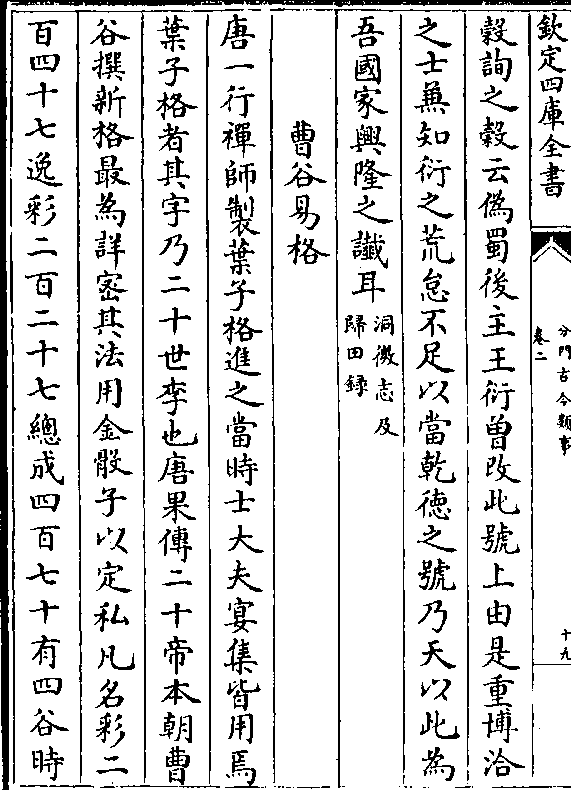 欽定四庫全書
分門古今類事
卷二
十九
穀詢之穀云僞蜀後主王衍曾改此號上由是重博洽
之士兼知衍之荒怠不足以當乾德之號乃天以此為
吾國家興隆之讖耳洞微志及
歸田録
曹谷易格
唐一行禪師製葉子格進之當時士大夫宴集皆用焉
葉子格者其字乃二十世李也唐果傳二十帝本朝曹
谷撰新格最為詳密其法用金骰子以定私凡名彩二
百四十七逸彩二百二十七總成四百七十有四谷時